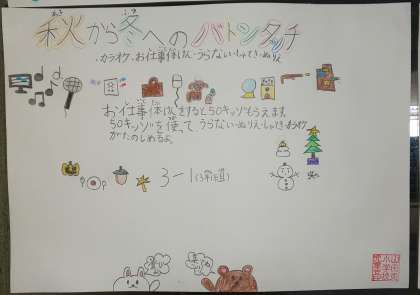 秋から冬へのバトンタッチ
・カラオケ・お仕事体けん・うらない・しゃてき・ぬりえ
お仕事体けんをすると50キッゾもらえます。
50キッゾを使って、うらない・ぬりえ・しゃてき・カラオケ
がたのしめるよ。
3-1